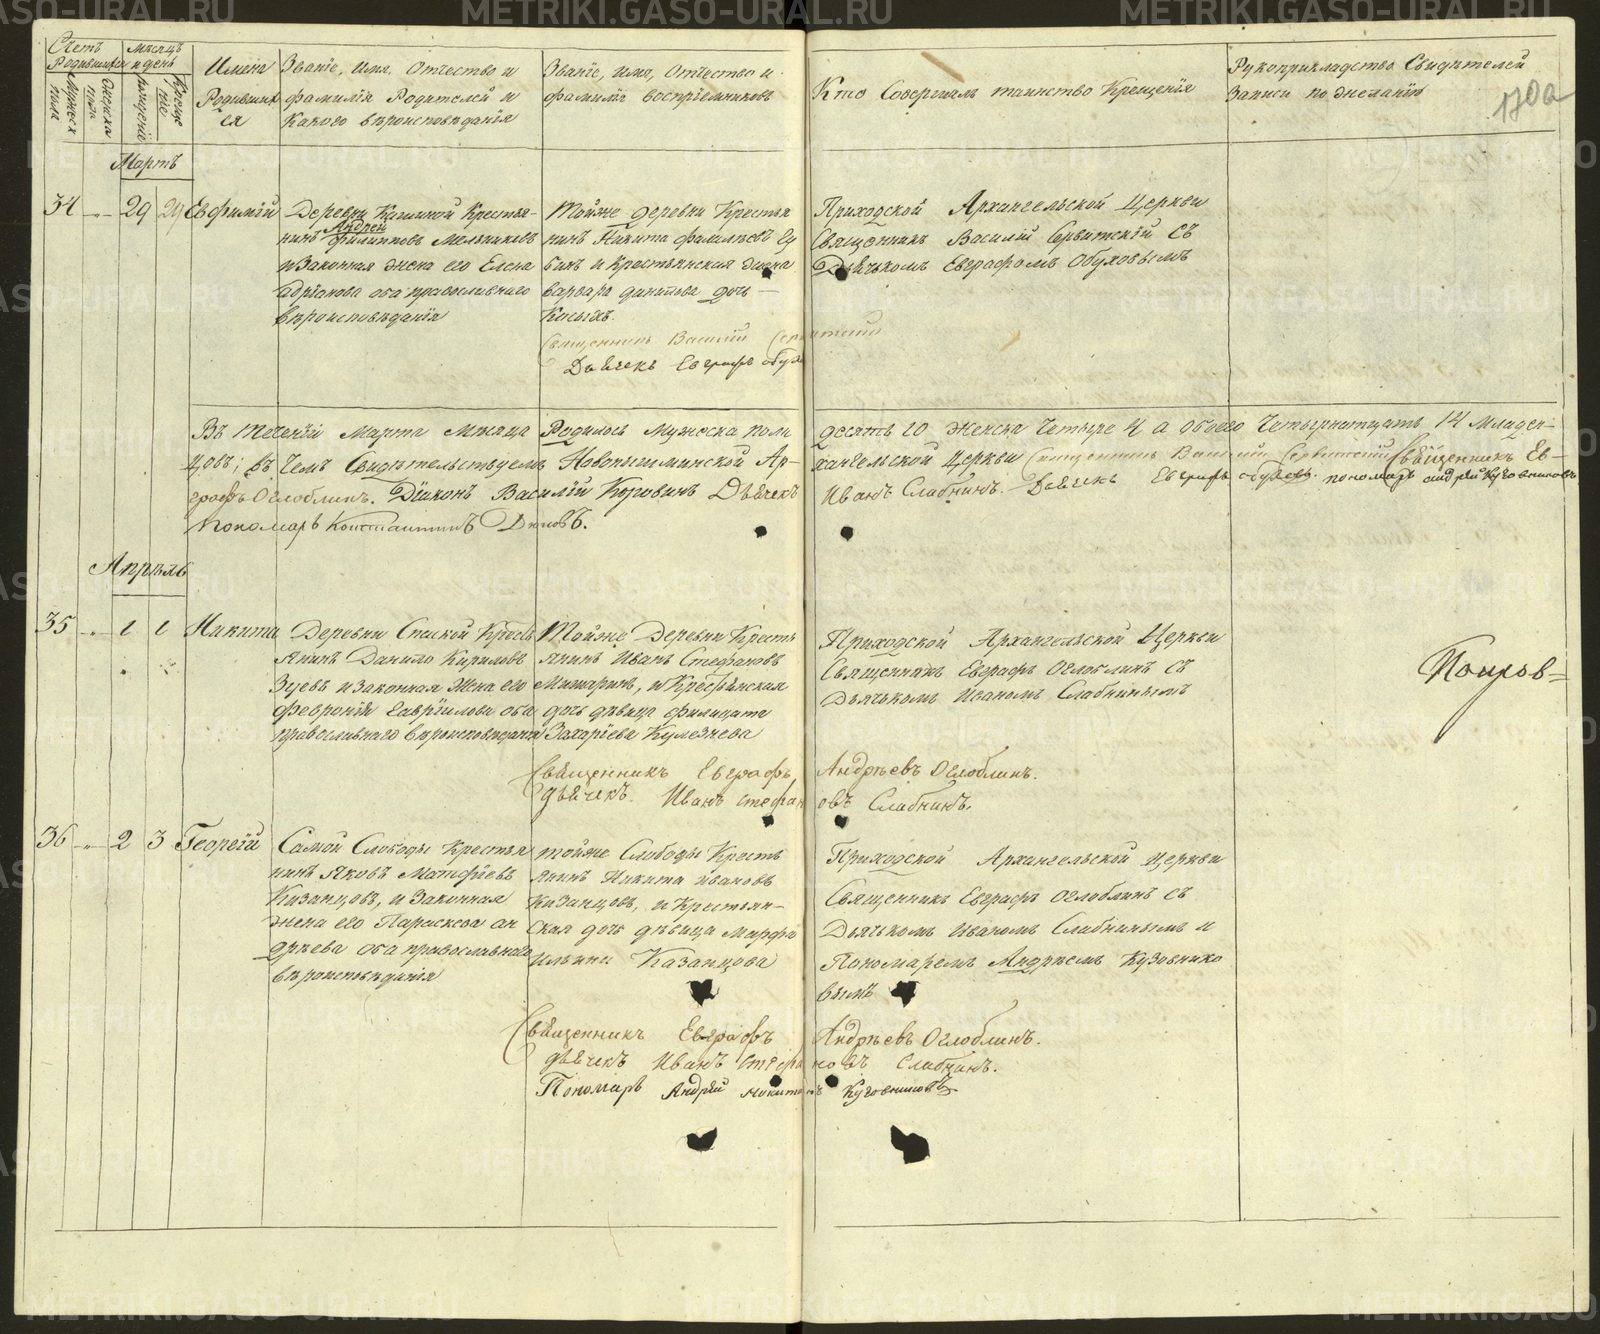 Счетъ Родившихся
Мѣсяцъ и день
Мужеска пола
Женска пола
рожденіе
Крещеніе
Имена Родившихся
Званіе, имя, Отчество и
фамиліи Родителей и
Какого вѣроисповѣданія
Званіе, имя, Отчество и
фамиліи воспріемниковъ
Кто Совершалъ таинство Крещенія
Рукоприкладство Свидѣтелей
Записи по желанію
170а
Мартъ
34 — 29 29 Евфимій
Деревни Крестья-
Андрей
нинъ Филиповъ Мельниковъ
и Законная жена его Елена
Адріанова оба православнаго
вѣроисповѣданія
Тойже деревни Крестья
нинъ Никита
и Крестьянская жена
варвара дочь —
Косыхъ.
Приходской Архангельской Церкви
Священникъ Василій Сервитскій съ
Дьячькомъ Евграфомъ Обуховымъ
Священникъ Василій Сервитскій
Дьячекъ Евграфъ Обухо
Въ теченіи Марта Мѣсяца Родилось Мужеска пола десять 10 женска Четыре 4 а обоего Четырнатцать 14 Младен-
цовъ; въ чемъ Свидѣтельствуемъ Новопышминской Ар-хангельской Церкви Священникъ Василій Сервитскій Священникъ Ев-
графъ Оглоблинъ. Діаконъ Василій Коровинъ Дьячекъ Иванъ Слабнинъ. Дьячекъ Евграфъ Обуховъ. пономарь андрей Кузовниковъ
Пономарь Константинъ
Апрѣль
35 — 1 1 Никита
Деревни Спаской Кресть
янинъ Данило Кириловъ
Зуевъ и законная Жена его
Феронія Гавріилова оба
православнаго вѣроисповѣданія
Тойже Деревни Кресть
янинъ Иванъ Стефановъ
и Крестьянская
дочь дѣвица
Захаріева
Приходской Архангельской Церкви
Священникъ Евграфъ Оглоблинъ съ
Дьячькомъ Иваномъ Слабнинымъ
Священникъ Евграфъ Андрѣевъ Оглоблинъ.
дьячекъ. Иванъ Стефановъ Слабнинъ.
36 — 2 3 Георгій
Самой Слободы Крестья
нинъ Яковъ Матфѣевъ
Казанцовъ, и Законная
жена его Параскева ан
дрѣева оба православнаго
вѣроисповѣданія
тойже Слободы Кресть
янинъ Никита ивановъ
Казанцовъ, и Крестьян-
ская дочь дѣвица Марфа
Ильина Казанцова
Приходской Архангельской Церкви
Священникъ Евграфъ Оглоблинъ съ
Дьячькомъ Иваномъ Слабнинымъ и
Пономаремъ Андрѣемъ Кузовнико
вымъ
Священникъ Евграфъ Андрѣевъ Оглоблинъ.
дьячекъ Иванъ Стефановъ Слабнинъ.
Пономарь Андрей никитинъ Кузовниковъ
METRIKI.GASO-URAL.RU